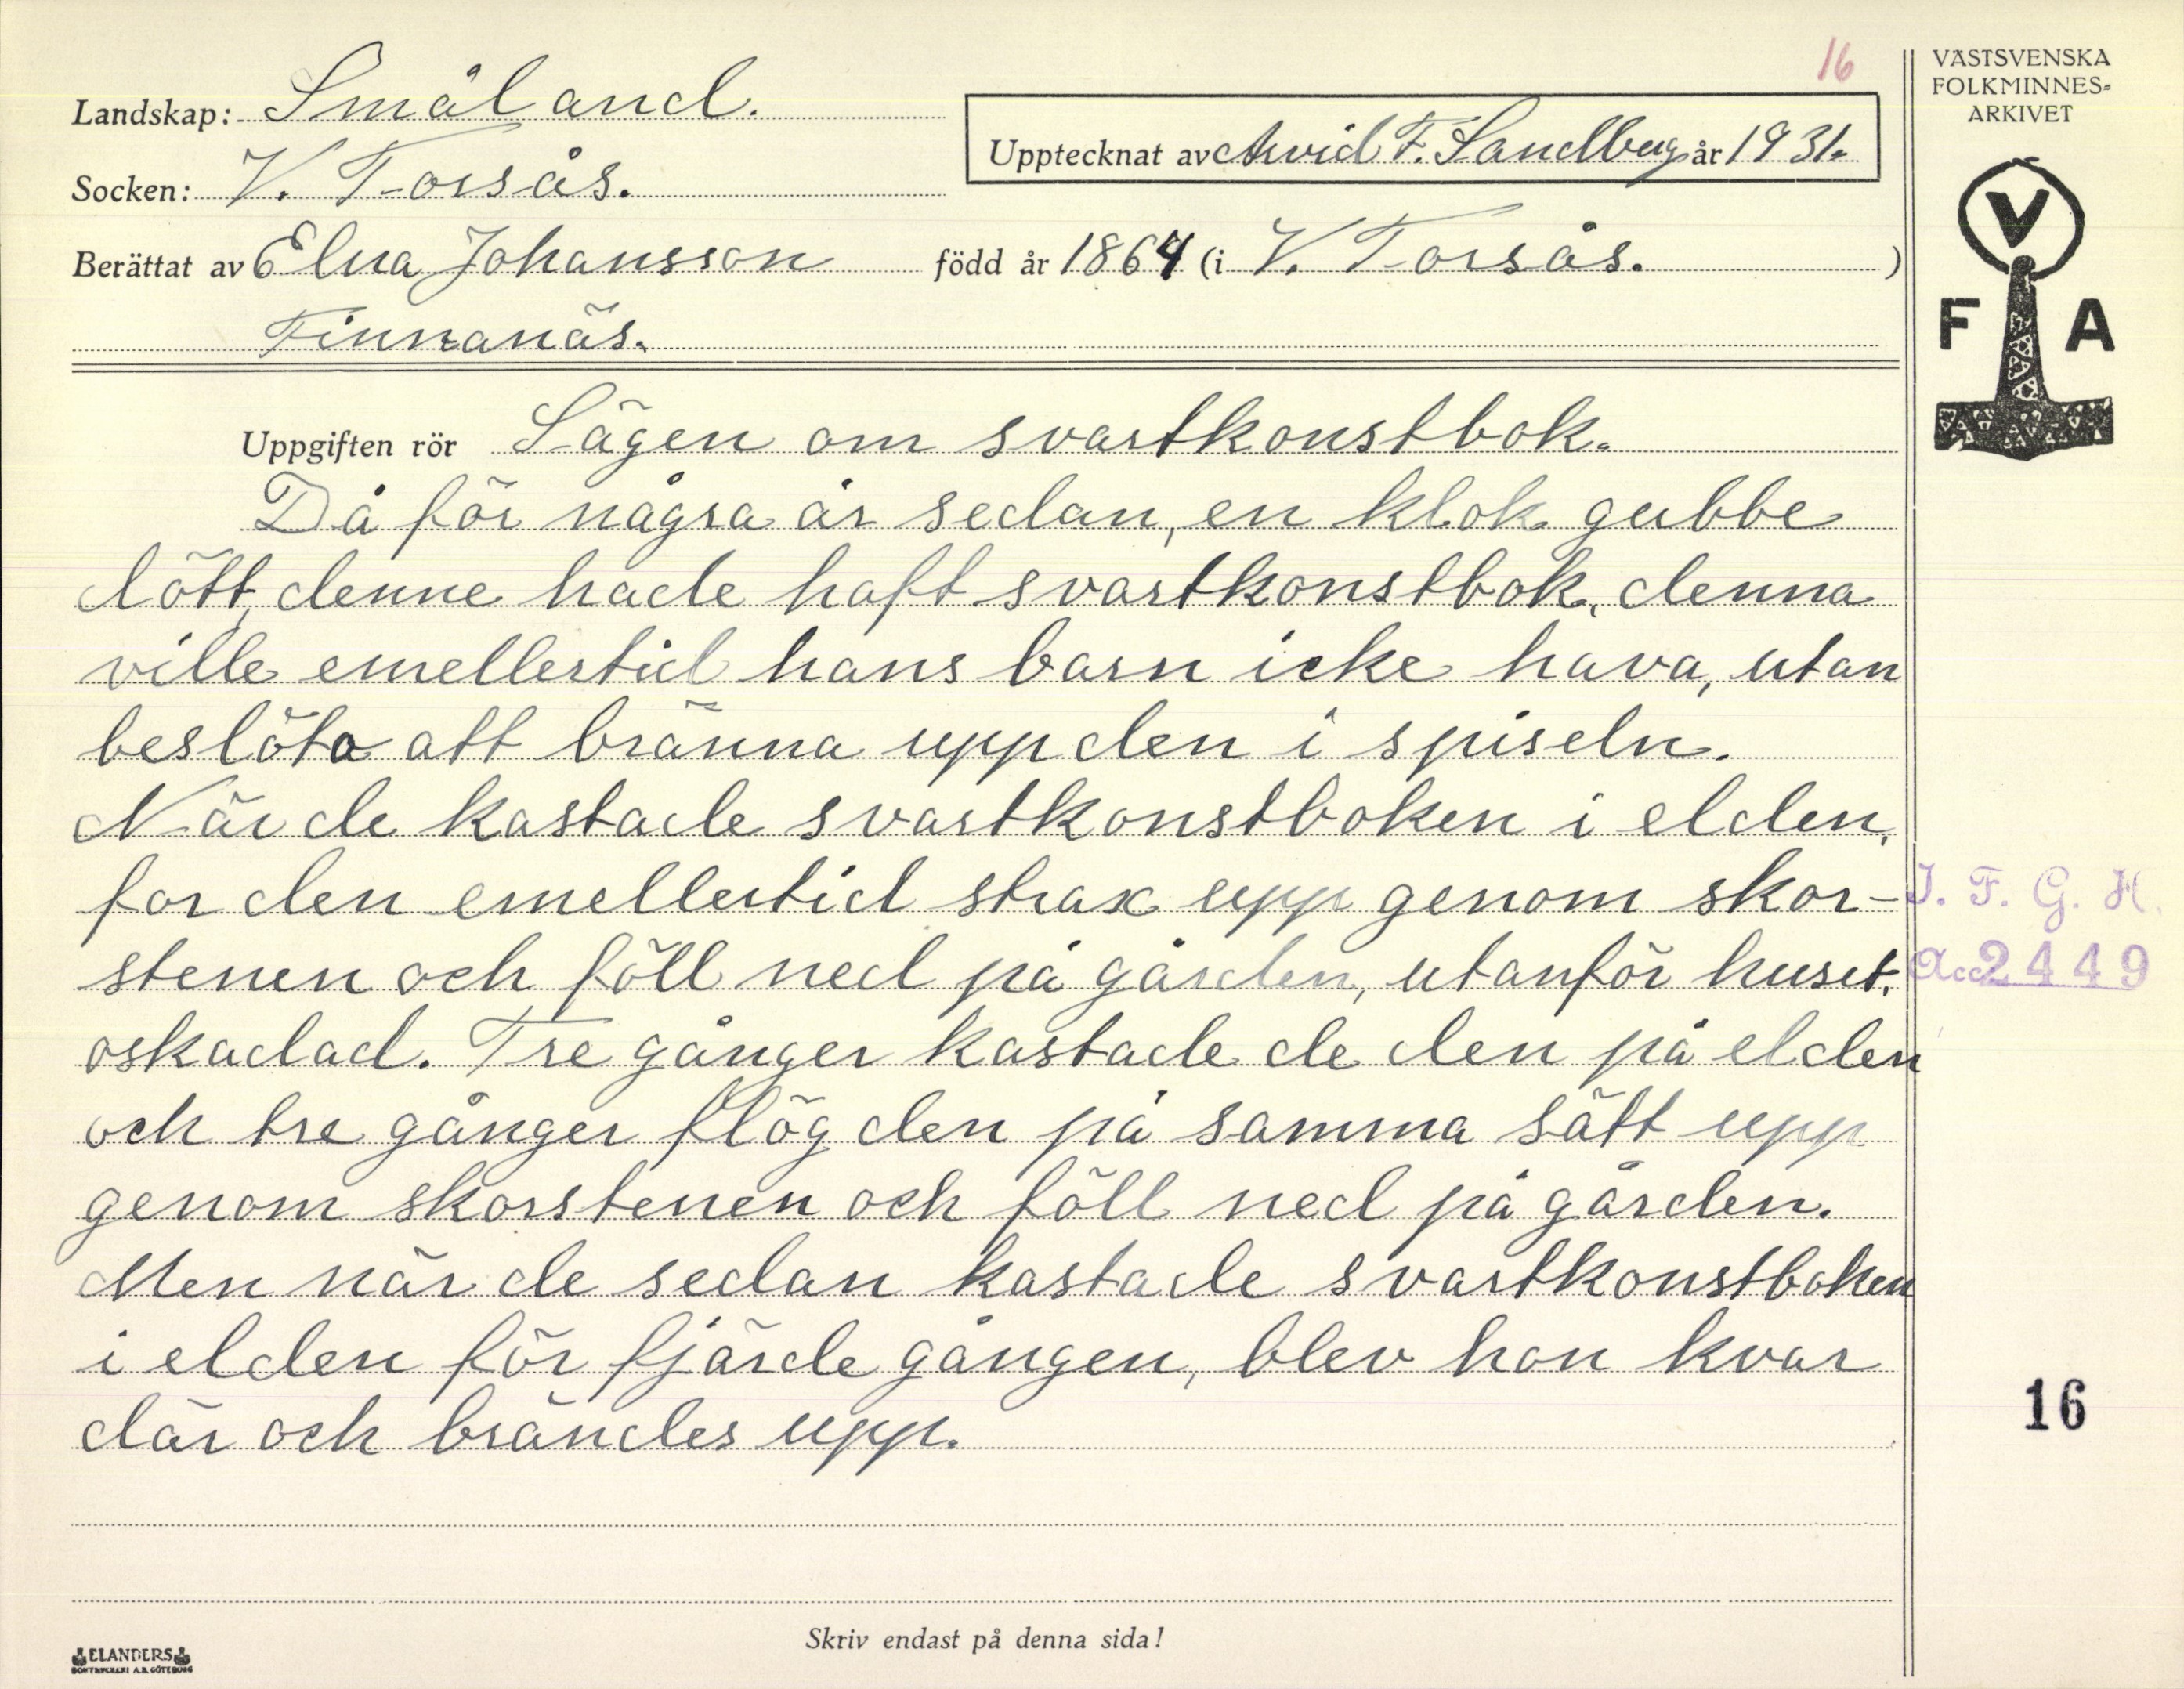 16
Landskap: Småland.
Upptecknat av Arvid F. Sandberg år 1931.
Socken: V. Torsås.
Berättat av Elna Johansson född år 1864 (i V. Torsås. )
Finnanäs.
Uppgiften rör Sägen om svartkonstbok.
Då för några år sedan, en klok gubbe
dött, denne hade haft svartkonstbok, denna
ville emellertid hans barn icke hava, utan
beslöto att bränna upp den i spiseln.
När de kastade svartkonstboken i elden,
for den emellertid strax upp genom skor-
stenen och föll ned på gården, utanför huset,
oskadad. Tre gånger kastade de den på elden
och tre gånger flög den på samma sätt upp
genom skorstenen och föll ned på gården.
Men när de sedan kastade svartkonstboken
i elden för fjärde gången, blev hon kvar
där och brändes upp.
Skriv endast på denna sida!
ELANDERS
BOKTRYCKERI A.B. GÖTEBORG
VÄSTSVENSKA
FOLKMINNES-
ARKIVET
V
F A
I. F. G. H.
Acc 2449
16